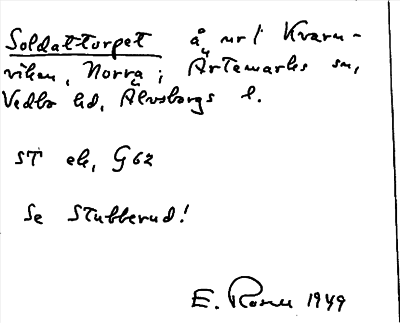 Soldattorpet å nr 1 Kvarn-
viken, Norra i Ärtemarks sn,
Vedbo hd, Älvsborgs l.
ST ek, G 62
Se Stubberud!
E. Rosell 1949